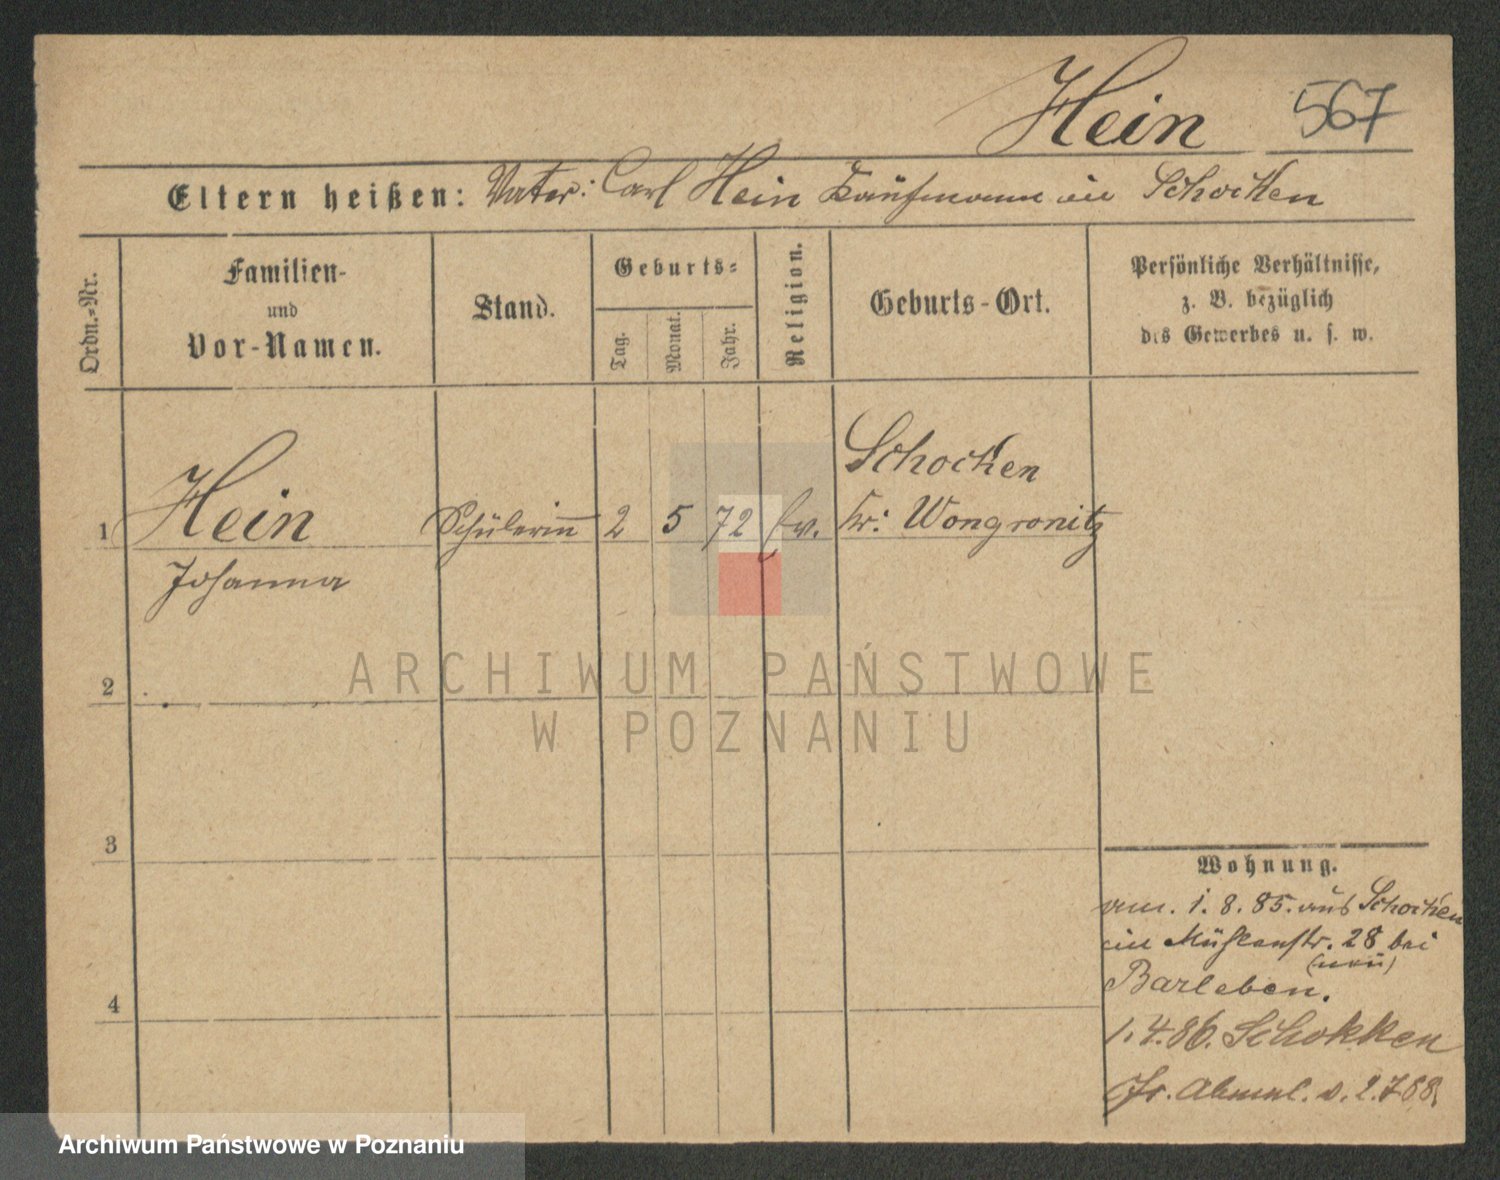 Hein 567
Eltern heißen: Vater: Carl Hein Kaufmann in Schocken
Ordn.-Nr.
Familien-
und
Vor-Namen.
Stand.
Geburts-
Tag.
Monat.
Jahr.
Religion.
Geburts-Ort.
Persönliche Verhältnisse,
z. B. bezüglich
des Gewerbes u. s. w.
1 Hein Schülerin 2 5 72 ev. Schocken
Kr: Wongrowitz
Johanna
2
3
4
Wohnung.
am. 1. 8. 85. aus Schocken
in Mühlenstr. 28 bei
(neu)
Barleben.
1.4.86. Schokken
Fr. Abml. v. 2.7.88.
ARCHIWUM PAŃSTWOWE
W POZNANIU
Archiwum Państwowe w Poznaniu